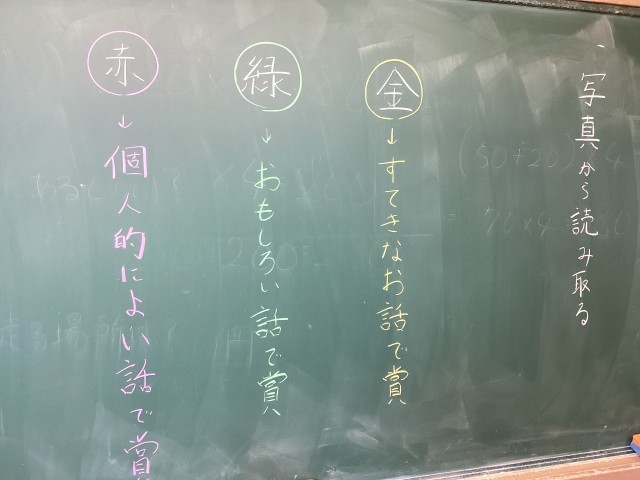 写真から読み取る
金→すてきなお話で賞
緑→おもしろい話で賞
赤→個人的によい話で賞